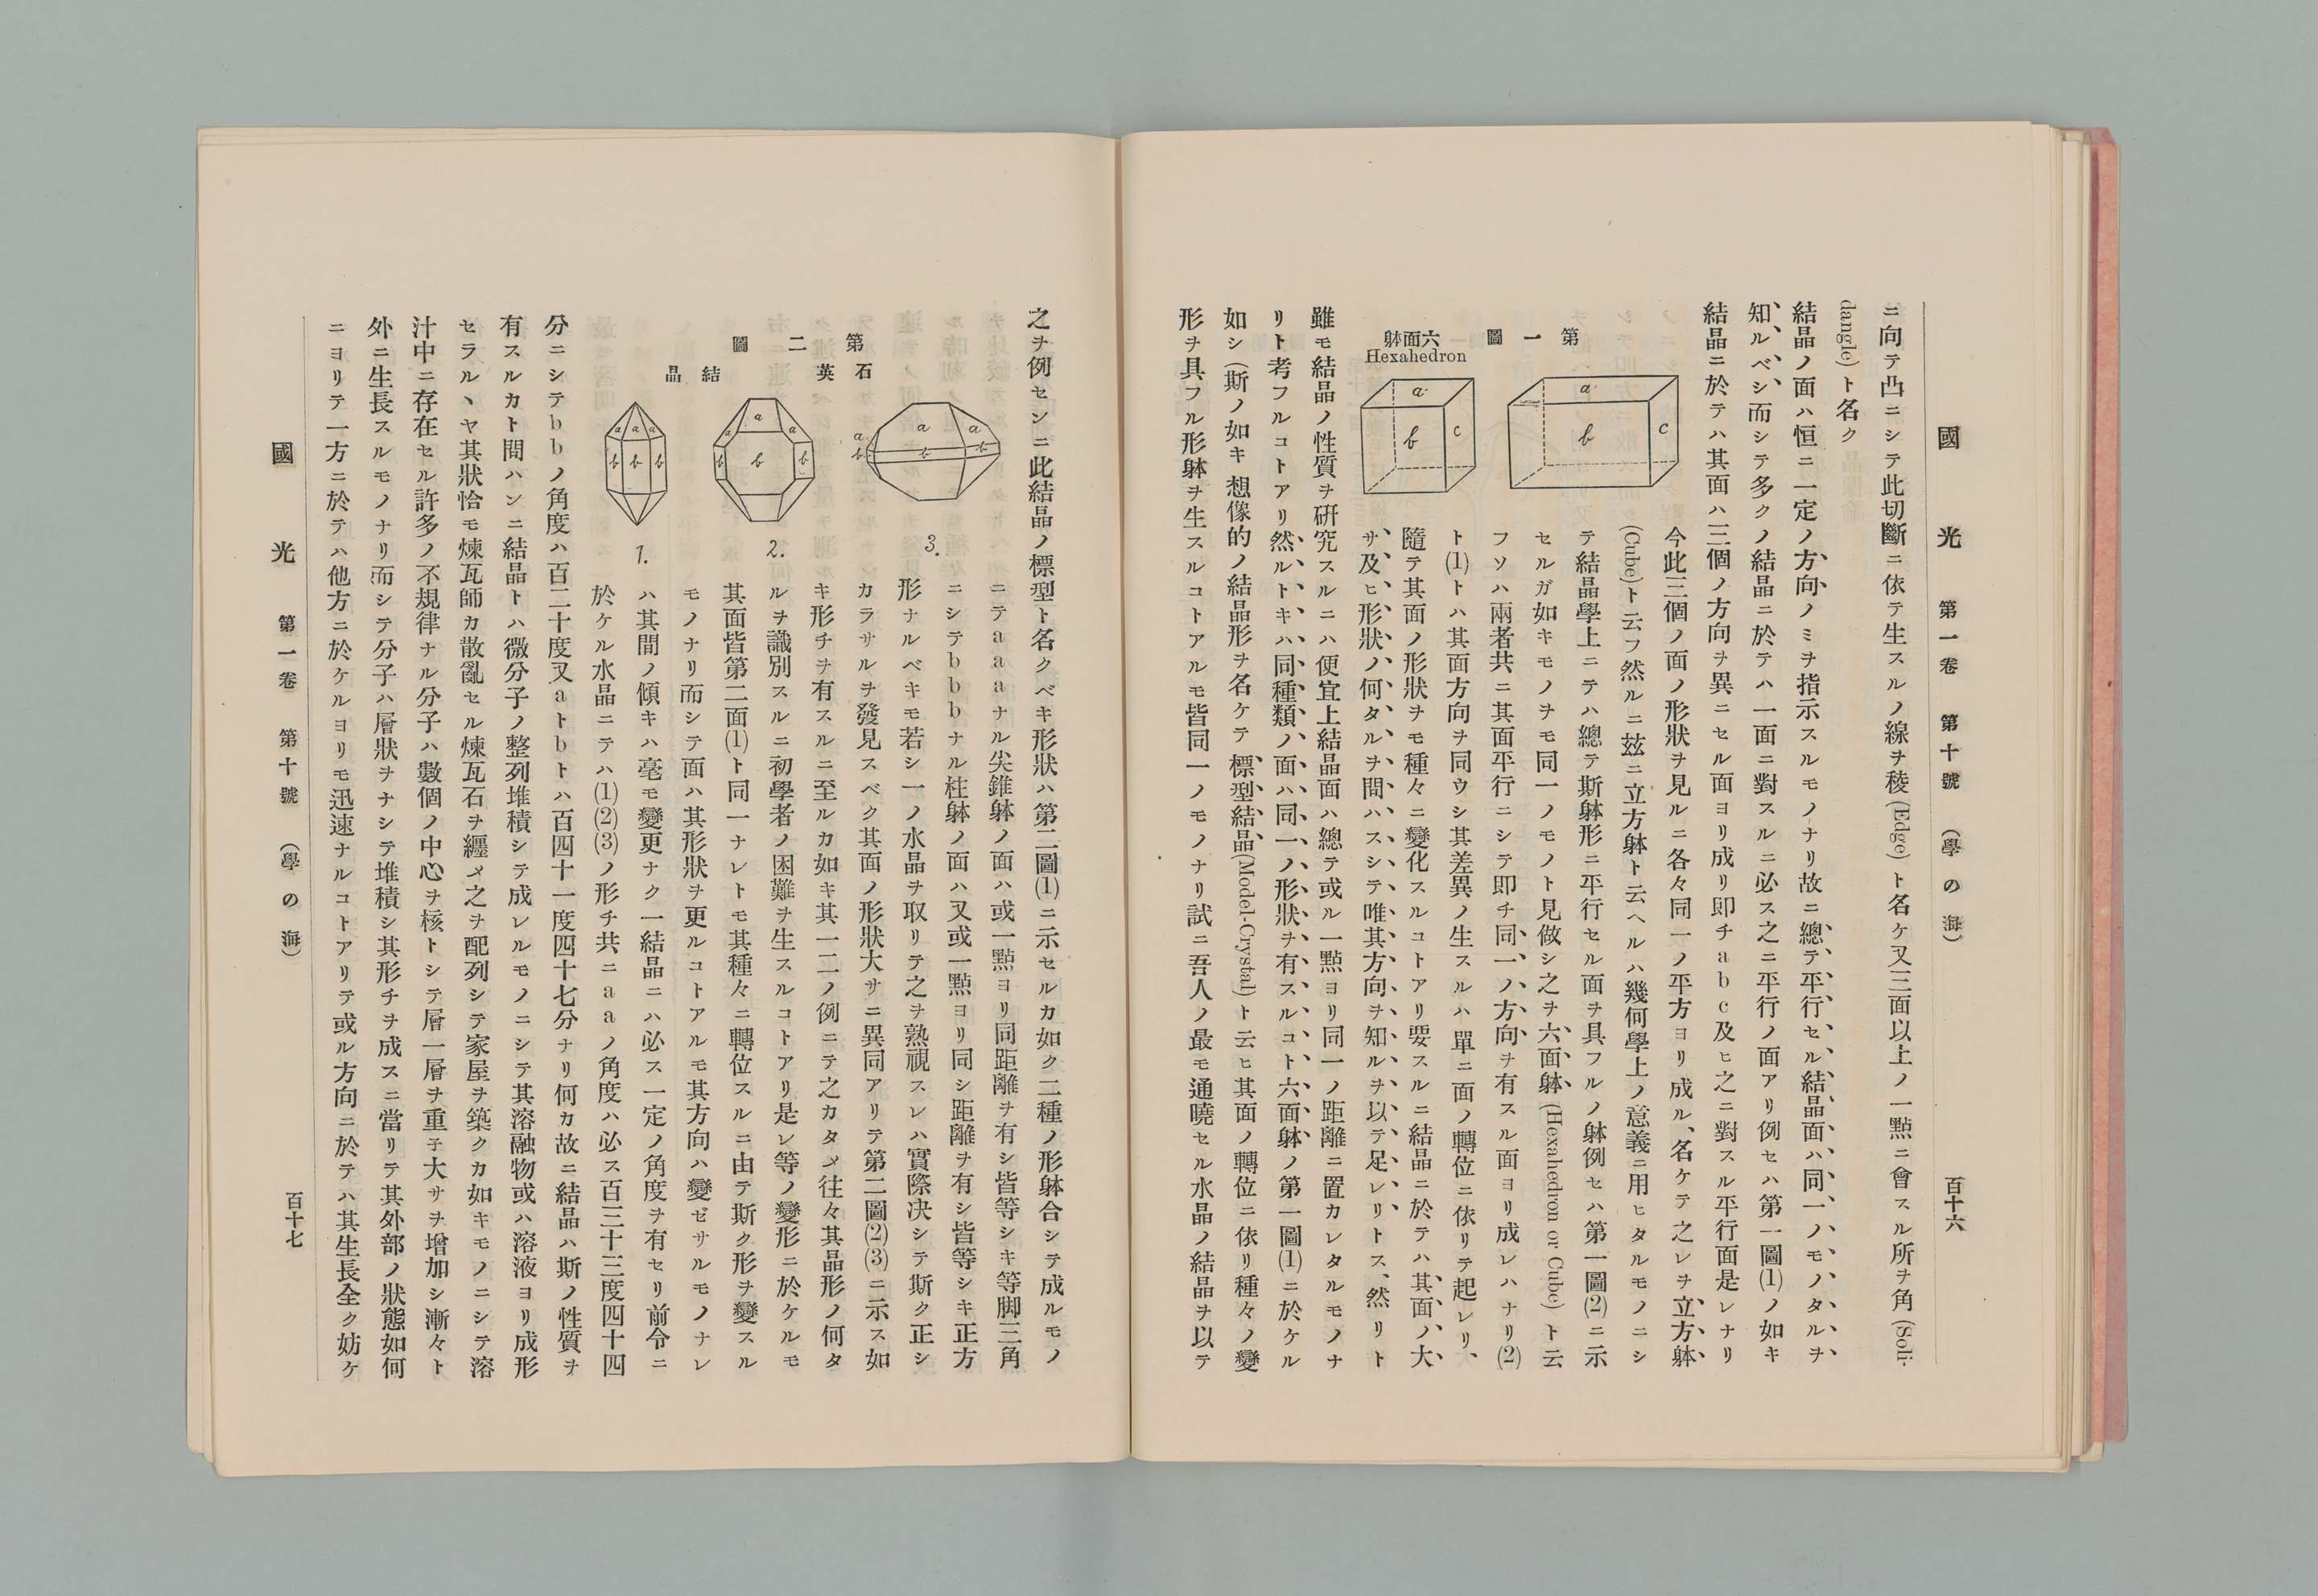 國光 第一卷 第十號 (學の海) 百十六
ニ向テ凸ニシテ此切斷ニ依テ生スルノ線ヲ稜(Edge)ト名ケ又三面以上ノ一點ニ會スル所ヲ角(Soli-
dangle)ト名ク
結晶ノ面ハ恒ニ一定ノ方向ノミヲ指示スルモノナリ故ニ總テ平行セル結晶面ハ同一ノモノタルヲ
知ルベシ而シテ多クノ結晶ニ於テハ一面ニ對スルニ必ス之ニ平行ノ面アリ例セハ第一圖(1)ノ如キ
結晶ニ於テハ其面ハ三個ノ方向ヲ異ニセル面ヨリ成リ即チabc及ヒ之ニ對スル平行面是レナリ
第一圖
六面躰
Hexahedron
a
b
c
a
b
c
今此三個ノ面ノ形狀ヲ見ルニ各々同一ノ平方ヨリ成ル、名ケテ之レヲ立方躰
(Cube)ト云フ然ルニ茲ニ立方躰ト云ヘルハ幾何學上ノ意義ニ用ヒタルモノニシ
テ結晶學上ニテハ總テ斯躰形ニ平行セル面ヲ具フルノ躰例セハ第一圖(2)ニ示
セルガ如キモノヲモ同一ノモノト見做シ之ヲ六面躰(Hexahedron or Cube)ト云
フソハ兩者共ニ其面平行ニシテ即チ同一ノ方向ヲ有スル面ヨリ成レハナリ(2)
ト(1)トハ其面方向ヲ同ウシ其差異ノ生スルハ單ニ面ノ轉位ニ依リテ起レリ、
隨テ其面ノ形狀ヲモ種々ニ變化スルコトアリ要スルニ結晶ニ於テハ其面ノ大
サ及ヒ形狀ノ何タルヲ問ハスシテ唯其方向ヲ知ルヲ以テ足レリトス、然リト
雖モ結晶ノ性質ヲ研究スルニハ便宜上結晶面ハ總テ或ル一點ヨリ同一ノ距離ニ置カレタルモノナ
リト考フルコトアリ然ルトキハ同種類ノ面ハ同一ノ形狀ヲ有スルコト六面躰ノ第一圖(1)ニ於ケル
如シ(斯ノ如キ想像的ノ結晶形ヲ名ケテ標型結晶(Model-Crystal)ト云ヒ其面ノ轉位ニ依リ種々ノ變
形ヲ具フル形躰ヲ生スルコトアルモ皆同一ノモノナリ試ニ吾人ノ最モ通曉セル水晶ノ結晶ヲ以テ
之ヲ例センニ此結晶ノ標型ト名クベキ形狀ハ第二圖(1)ニ示セルカ如ク二種ノ形躰合シテ成ルモノ
第二圖
石英結晶
a a a
b b b
1.
a a a
b b b
2.
a a a
b b
3.
ニテaaaナル尖錐躰ノ面ハ或一點ヨリ同距離ヲ有シ皆等シキ等脚三角
ニシテbbbナル柱躰ノ面ハ又或一點ヨリ同シ距離ヲ有シ皆等シキ正方
形ナルベキモ若シ一ノ水晶ヲ取リテ之ヲ熟視スレハ實際決シテ斯ク正シ
カラサルヲ發見スベク其面ノ形狀大サニ異同アリテ第二圖(2)(3)ニ示ス如
キ形チヲ有スルニ至ルカ如キ其一二ノ例ニテ之カタメ往々其晶形ノ何タ
ルヲ識別スルニ初學者ノ困難ヲ生スルコトアリ是レ等ノ變形ニ於ケルモ
其面皆第二面(1)ト同一ナレトモ其種々ニ轉位スルニ由テ斯ク形ヲ變スル
モノナリ而シテ面ハ其形狀ヲ更ルコトアルモ其方向ハ變ゼサルモノナレ
ハ其間ノ傾キハ毫モ變更ナク一結晶ニハ必ス一定ノ角度ヲ有セリ前令ニ
於ケル水晶ニテハ(1)(2)(3)ノ形チ共ニaaノ角度ハ必ス百三十三度四十四
分ニシテbbノ角度ハ百二十度又aトbトハ百四十一度四十七分ナリ何カ故ニ結晶ハ斯ノ性質ヲ
有スルカト問ハンニ結晶トハ微分子ノ整列堆積シテ成レルモノニシテ其溶融物或ハ溶液ヨリ成形
セラルヽヤ其狀恰モ煉瓦師カ散亂セル煉瓦石ヲ纒メ之ヲ配列シテ家屋ヲ築クカ如キモノニシテ溶
汁中ニ存在セル許多ノ不規律ナル分子ハ數個ノ中心ヲ核トシテ層一層ヲ重子大サヲ增加シ漸々ト
外ニ生長スルモノナリ而シテ分子ハ層狀ヲナシテ堆積シ其形チヲ成スニ當リテ其外部ノ狀態如何
ニヨリテ一方ニ於テハ他方ニ於ケルヨリモ迅速ナルコトアリテ或ル方向ニ於テハ其生長全ク妨ケ
國光 第一卷 第十號 (學の海) 百十七